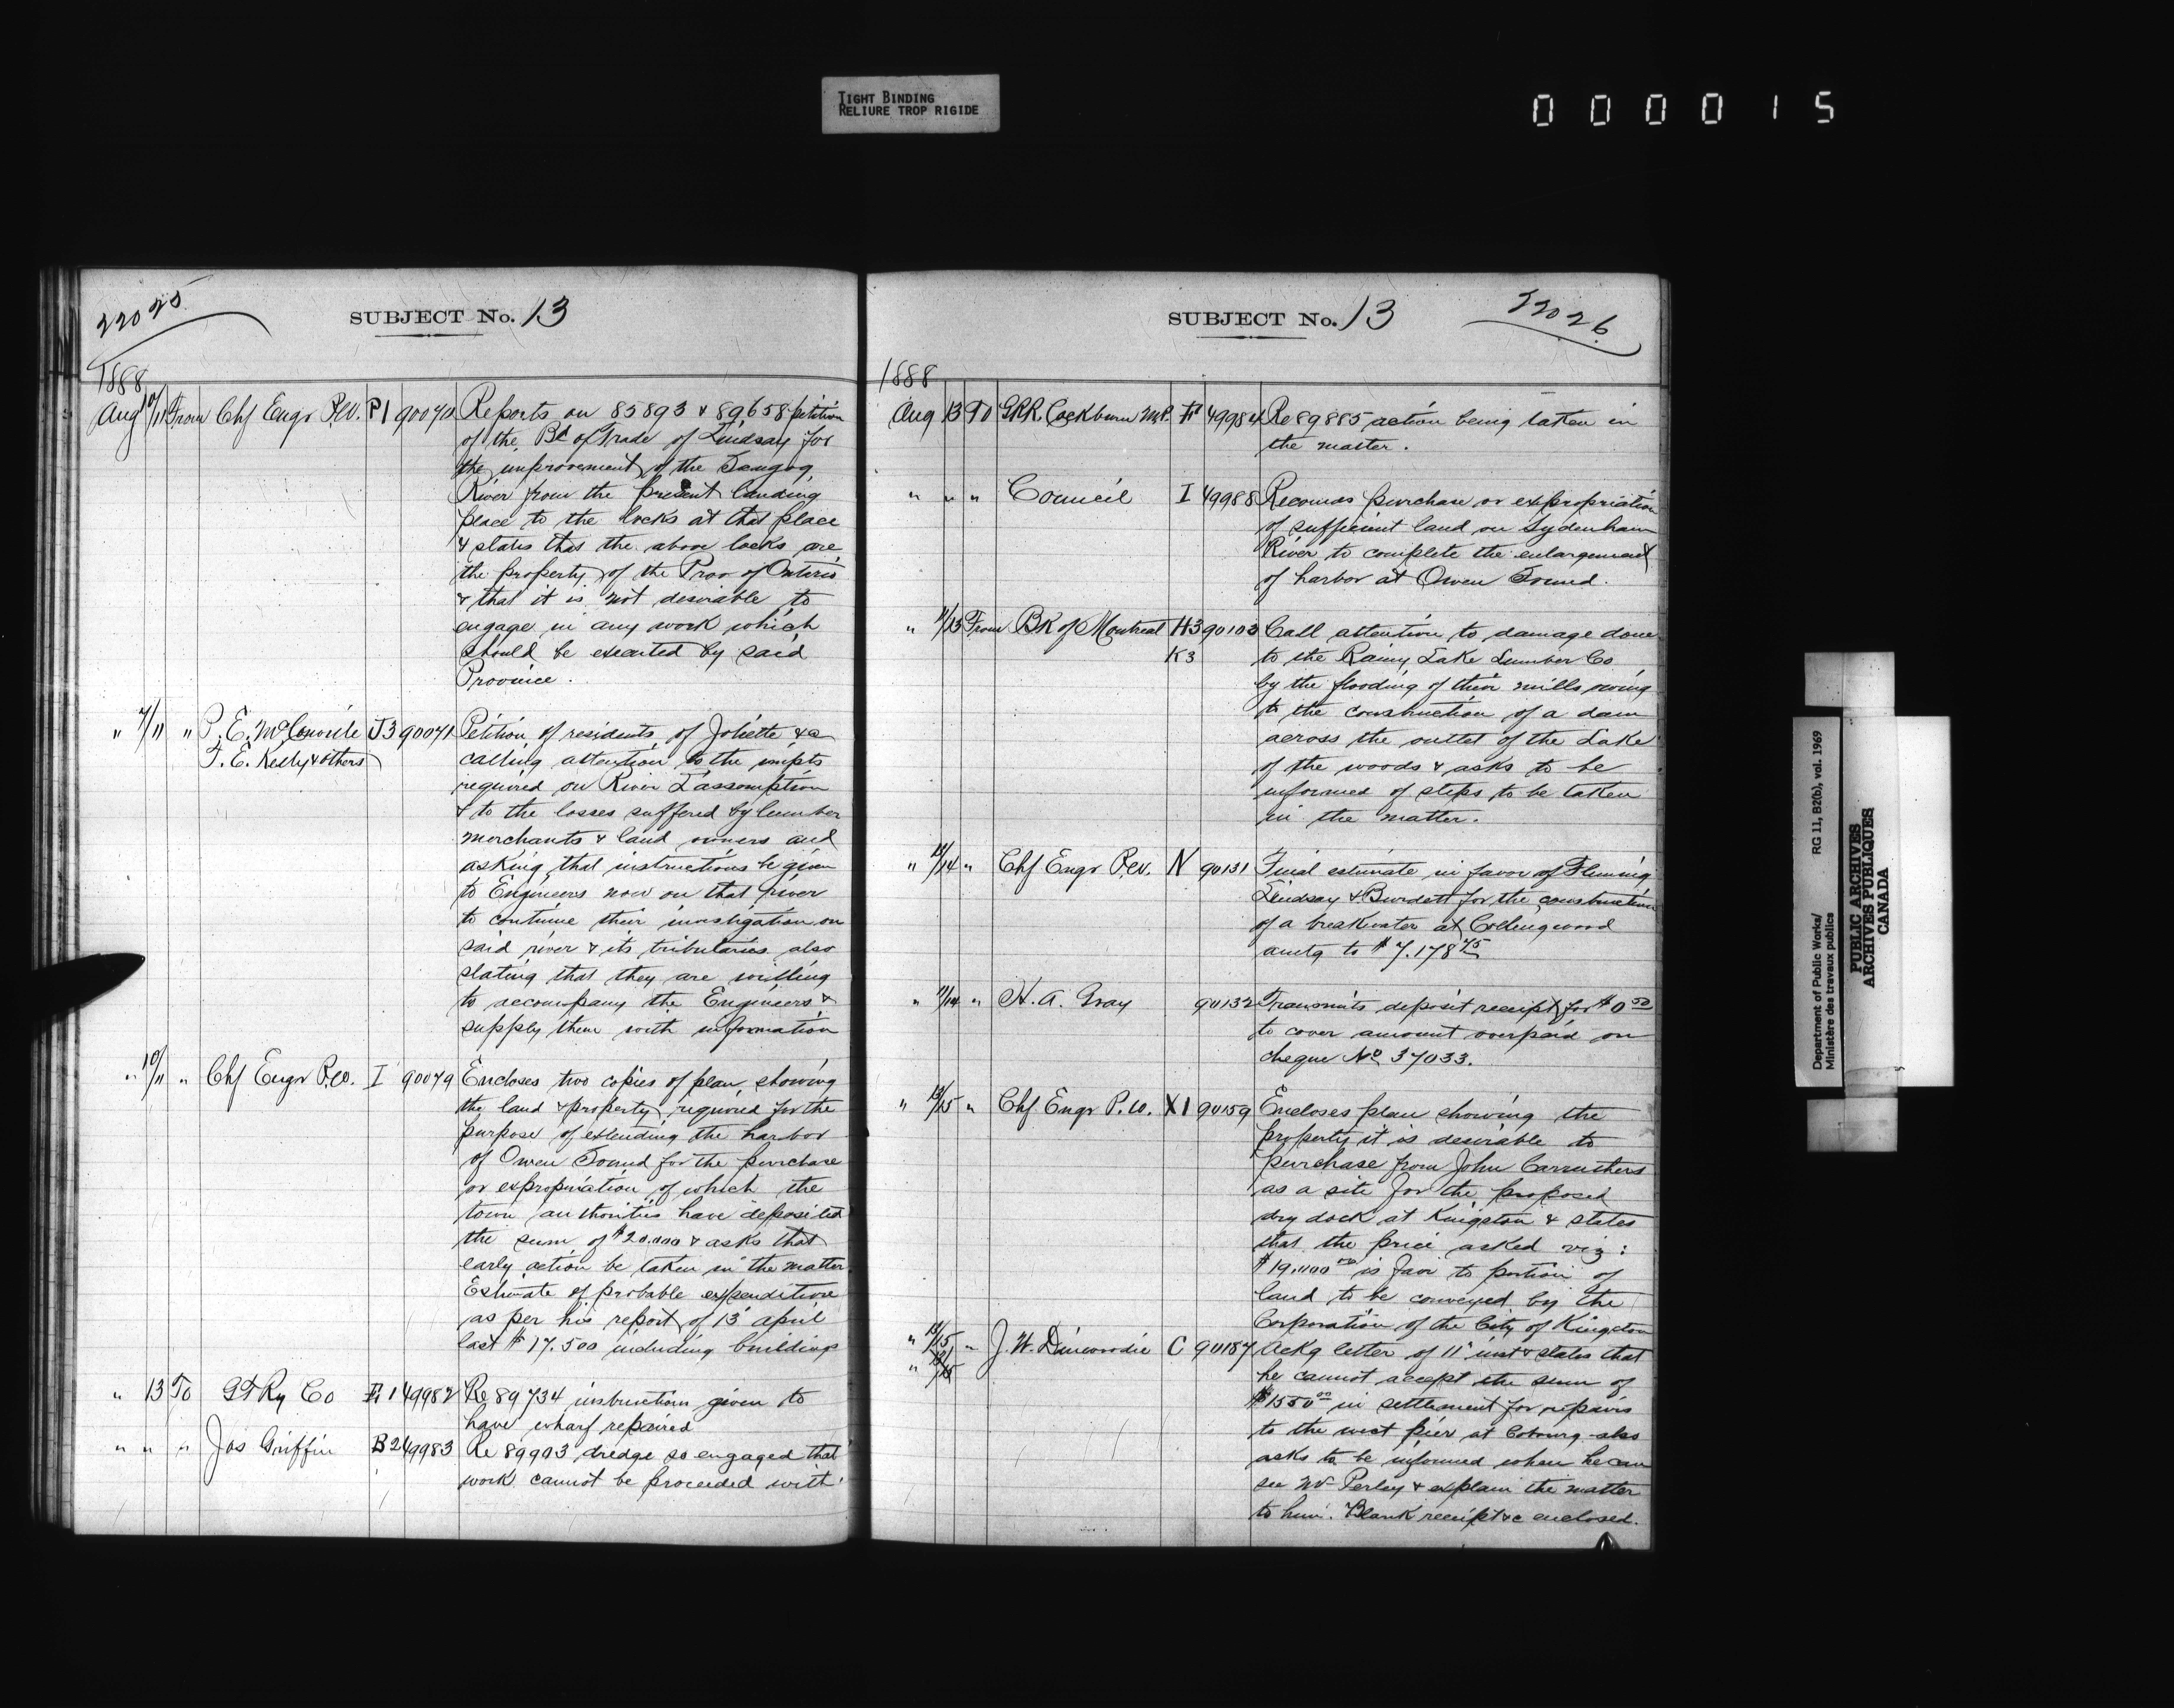 TIGHT BINDING
RELIURE TROP RIGIDE
000015
22025
SUBJECT No. 13
1888
Aug 10/11 From Chf Engr P.W. P1 90070 Reports on 85893 & 89658 petition
of the Bd of Trade of Lindsay for
the improvement of the Scugog
River from the present landing
place to the locks at that place
& states that the above locks are
the property of the Prov of Ontario
& that it is not desirable to
engage in any work which
should be executed by said
Province.
" 7/11 " P. E. McConville J3 90071 Petition of residents of Joliette &c
F. E. Kelly & others calling attention to the impts
required on River L'assomption
& to the losses suffered by lumber
merchants & land owners and
asking that instructions be given
to Engineers now on that river
to continue their investigation on
said river & its tributaries also
stating that they are willing
to accompany the Engineers &
supply them with information
" 10/11 " Chf Engr P.W. I 90079 Encloses two copies of plan showing
the land & property required for the
purpose of extending the harbor
of Owen Sound for the purchase
or expropriation of which the
town authorities have deposited
the sum of $20.000 & asks that
early action be taken in the matter.
Estimate of probable expenditure
as per his report of 13 april
last $17.500 including buildings
" 13 To GT Ry Co E1 49982 Re 89734 instructions given to
have wharf repaired
" " " Jos Griffin B2 49983 Re 89993 dredge so engaged that
work cannot be proceeded with
SUBJECT No. 13
22026
1888
Aug 13 To GRR. Cockburn M.P. 49984 Re 89885 action being taken in
the matter.
" " " Council I 49988 Recomds purchase or expropriation
of sufficient land on Sydenham
River to complete the enlargement
of harbor at Owen Sound.
" 11/13 From Bk of Montreal H3 90103 Call attention to damage done
K3 to the Rainy Lake Lumber Co
by the flooding of their mills owing
to the construction of a dam
across the outlet of the Lake
of the woods & asks to be
informed of steps to be taken
in the matter.
" /14 " Chf Engr P.W. N 90131 Final estimate in favor of Fleming
Lindsay & Burdett for the construction
of a breakwater at Collingwood
amtg to $7.178 75
" 11/14 " H. A. Gray 90132 Transmits deposit receipt for $0 50
to cover amount overpaid on
cheque No 37033.
" 13/15 " Chf Engr P.W. X1 90159 Encloses plan showing the
property it is desirable to
purchase from John Carruthers
as a site for the proposed
dry dock at Kingston & states
that the price asked viz:
$19.000 00 is fair to portion of
land to be conveyed by the
Corporation of the City of Kingston
" 13/15 " J. W. Dinwoodie C 90187 Ackg letter of 11 inst & states that
" he cannot accept the sum of
$1550 00 in settlement for repairs
to the west pier at Cobourg also
asks to be informed when he can
see Mr Perley & explain the matter
to him. Blank receipt &c enclosed.
Department of Public Works/
Ministère des travaux publics
RG 11, B2(b), vol. 1969
PUBLIC ARCHIVES
ARCHIVES PUBLIQUES
CANADA